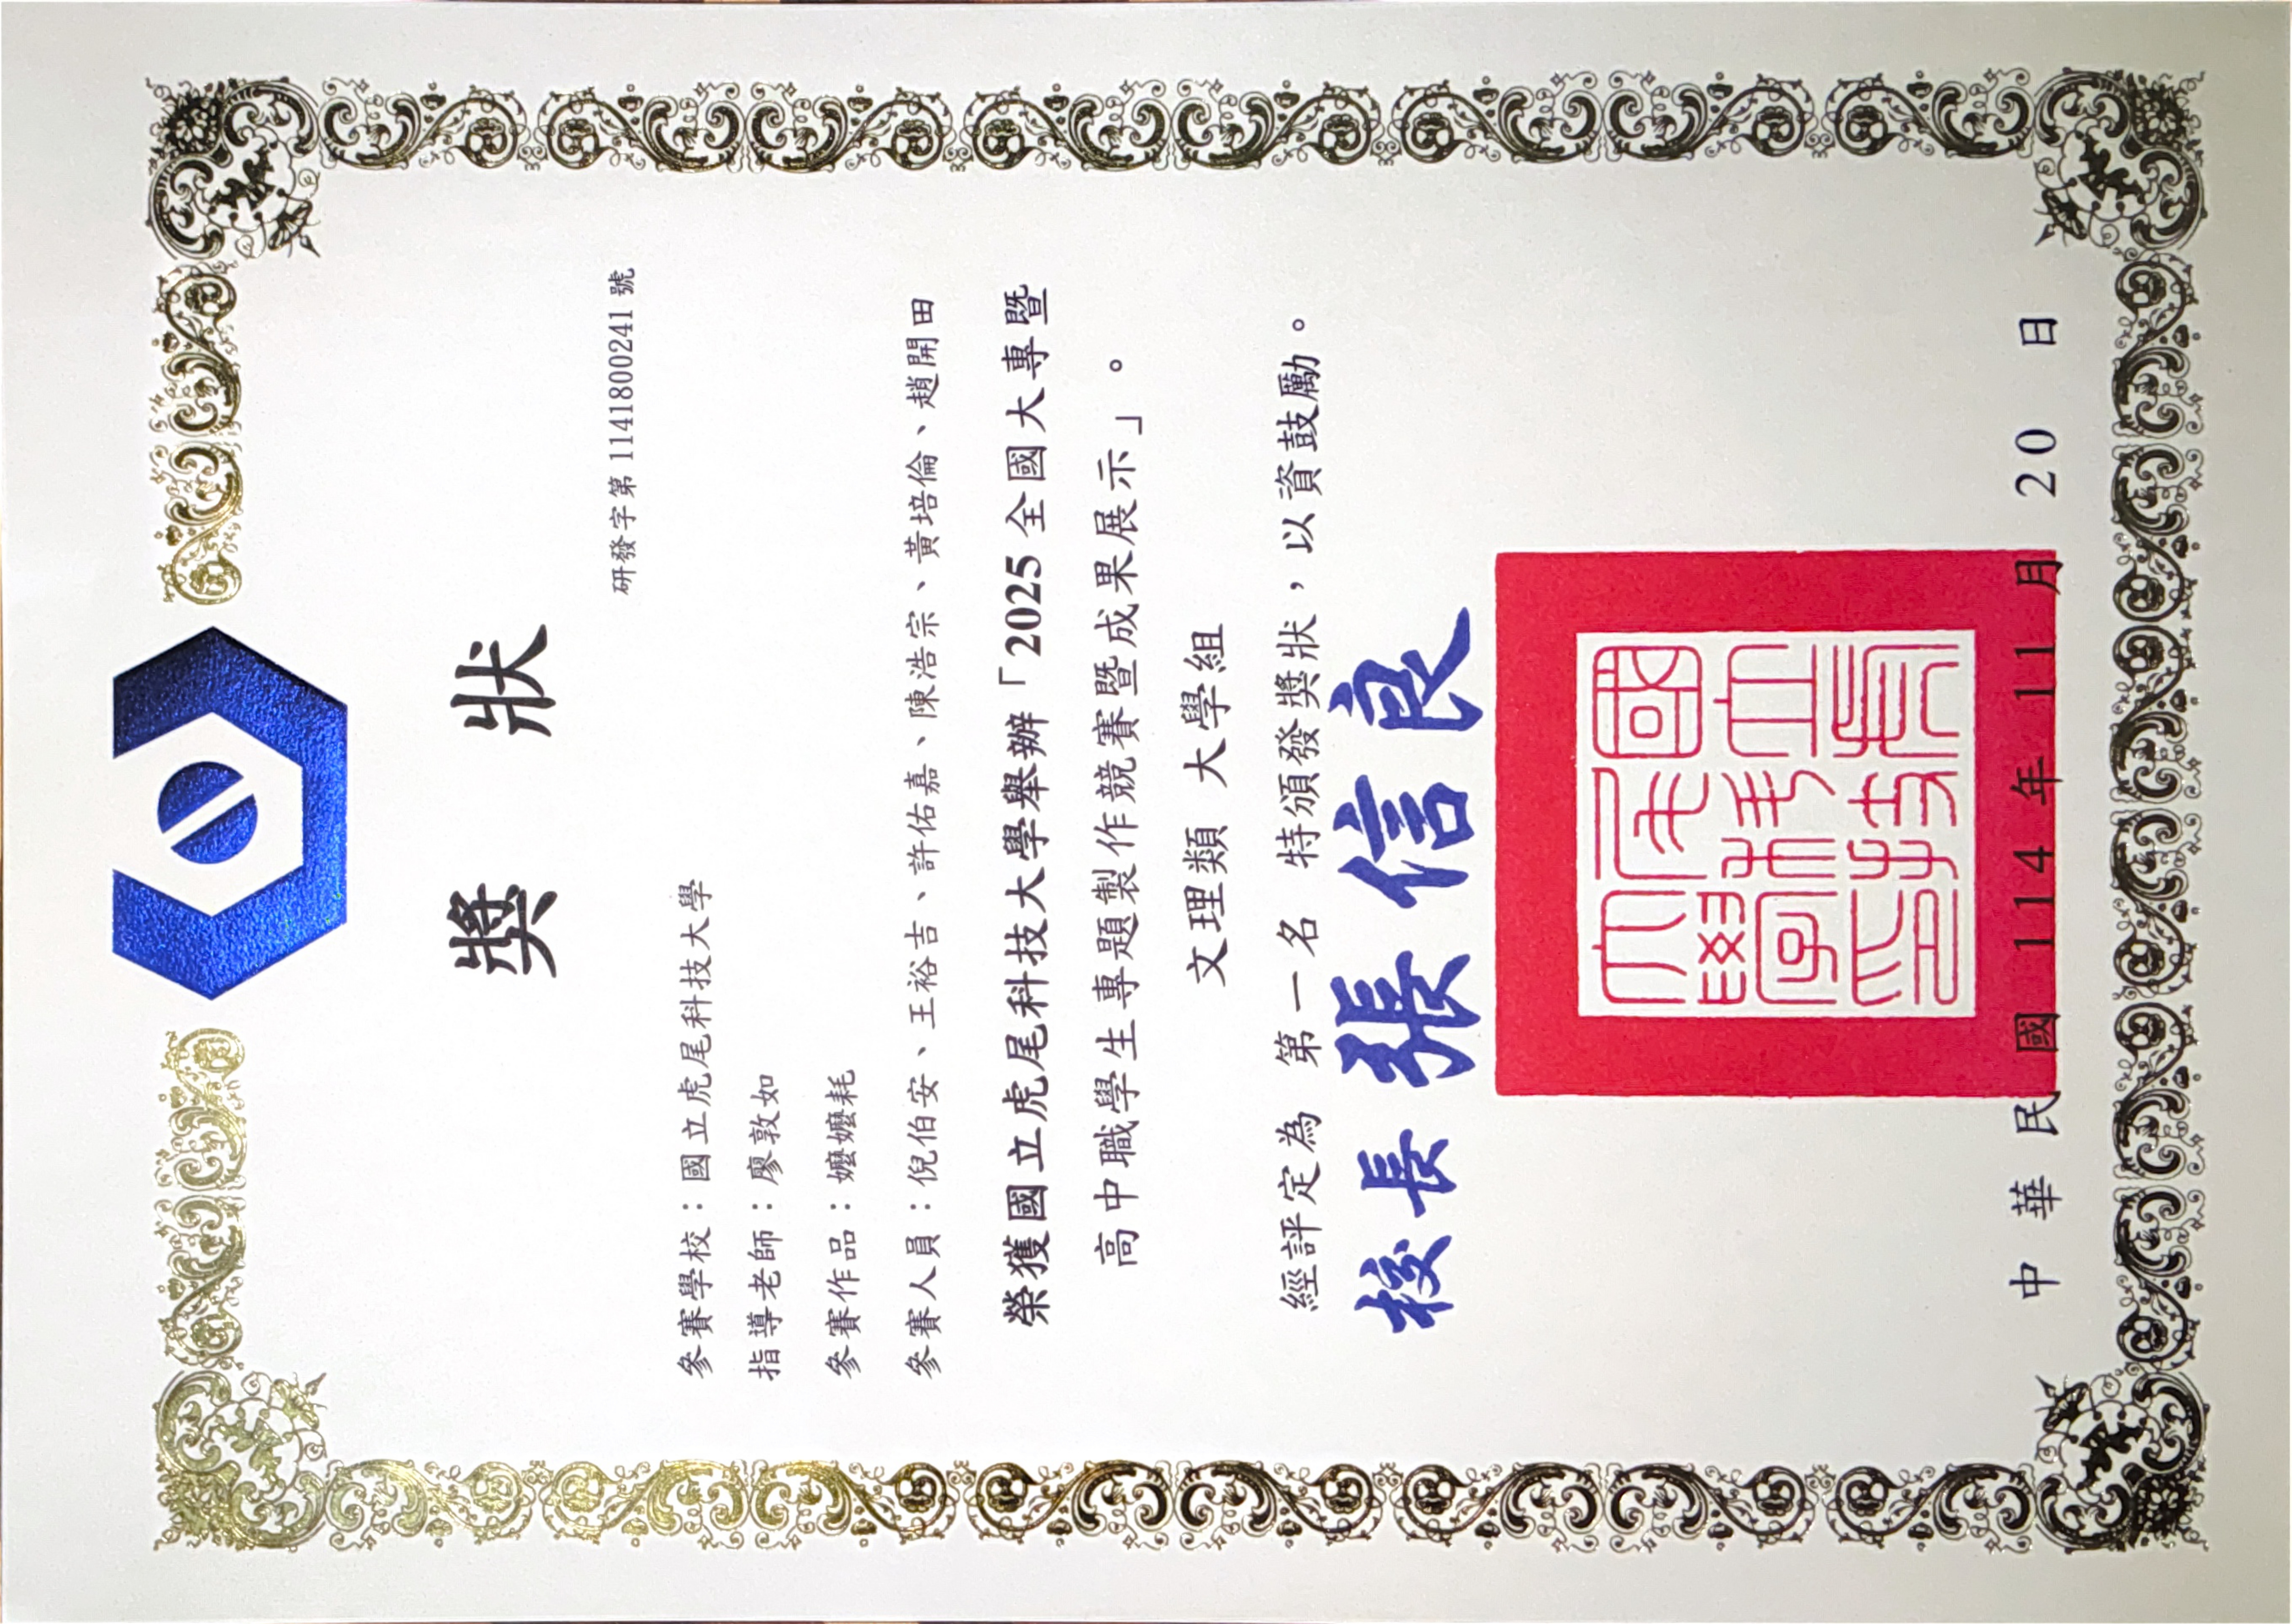 獎 狀
研發字第 1141800241 號
參賽學校：國立虎尾科技大學
指導老師：廖敦如
參賽作品：嬤嬤耗
參賽人員：倪伯安、王裕吉、許佑嘉、陳浩宗、黃培倫、趙開田
榮獲國立虎尾科技大學舉辦「2025 全國大專暨
高中職學生專題製作競賽暨成果展示」。
文理類 大學組
經評定為 第一名 特頒發獎狀，以資鼓勵。
校長 張信良
中 華 民 國 114 年 11 月 20 日